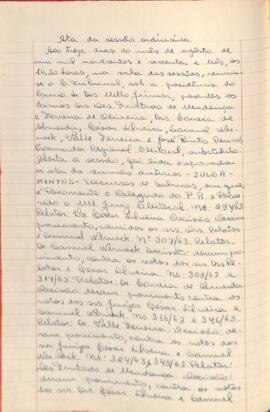 Ata da sessão ordinária
Aos treze dias do mês de agôsto de
um mil novecentos e sessenta e três, às
14,30 horas, na sala das sessões, reuniu-
se o Tribunal, sob a presidência do
Exmo Sr. Des. Mello Júnior, presentes os
Exmos Srs. Des. Trindade de Mendonça
e Ferreira de Oliveira, Drs. Correia de
Almeida, Cesar Silveira, Samuel Wer-
neck, Valle Ferreira e José Pinto Renó,
Procurador Regional Eleitoral, substituto.
Aberta a sessão, foi lida e aprovada
a ata da reunião anterior - JULGA-
MENTOS - Recursos de
é Recorrente o Delegado do P.R. e Recor-
rido o MM. Juiz Eleitoral. Nº
Relator: Dr. Cesar Silveira Decisão: Deram
provimento, vencidos os srs. Drs. Relator
e Samuel Werneck. Nº 307/63. Relator:
Dr. Samuel Werneck. Decisão: deram pro-
vimento, contra os votos dos srs. Drs. Re-
lator e Cesar Silveira. Nº: 308/63 e
314/63. Relator: Dr. Correia de Almeida
Decisão: deram provimento contra os
votos dos srs. juízes Cesar Silveira e
Samuel Werneck. Nº: 316/63 e 346/63.
Relator: Dr. Valle Ferreira. Decisão: de-
ram provimento, contra os votos dos
srs. juízes Cesar Silveira e Samuel
Werneck. Nº: 324/63, 343/63. Relator:
Des. Trindade de Mendonça. Decisão:
deram provimento, contra os votos
dos srs. Drs. Cesar Silveira e Samuel